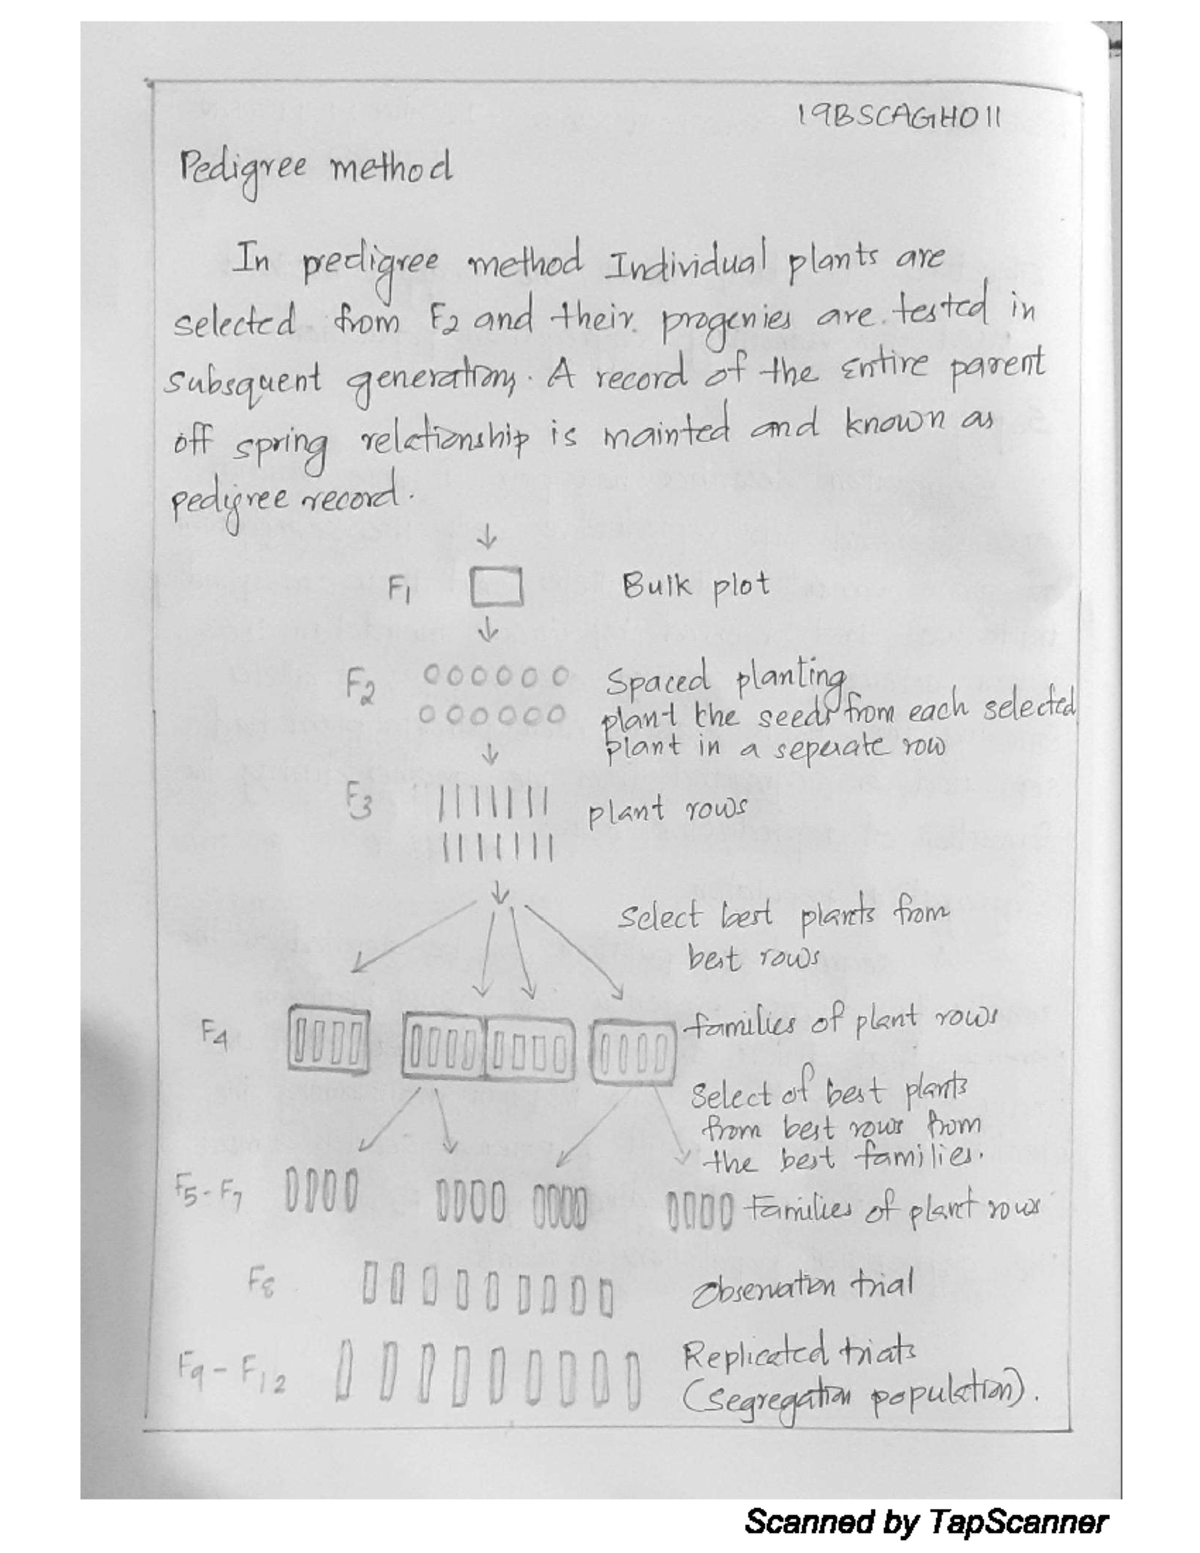 19BSCAGH011
Pedigree method
In predigree method Individual plants are
selected from F2 and their progenies are tested in
subsquent generations. A record of the entire parent
off spring relationship is mainted and known as
pedigree record.
F1 Bulk plot
F2 Spaced planting
plant the seeds from each selected
plant in a seperate row
F3 plant rows
Select best plants from
best rows
F4 families of plant rows
Select of best plants
from best rows from
the best families.
F5-F7 Families of plant rows
F8 Observation trial
F9-F12 Replicated trials
(segregation population).
Scanned by TapScanner